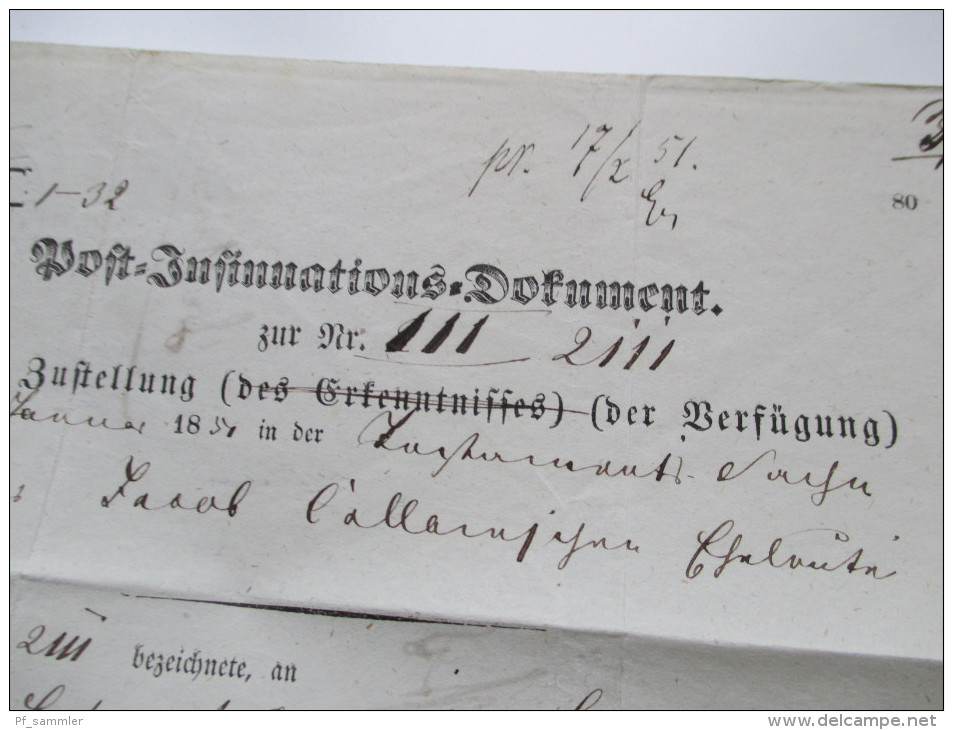 pr. 17/x 51.
1-32
80
Post-Insinuations-Dokument.
zur Nr. 111 2111
Zustellung (des Erkenntnisses) (der Verfügung)
Januar 1851 in der Testaments-Sache
Jacob Eheleute
2111 bezeichnete, an
Pf_sammler
www.delcampe.net